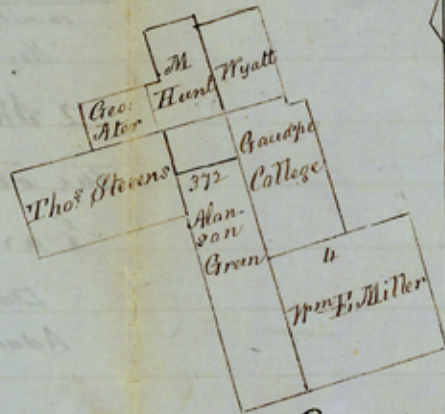 M
Hunt
Wyatt
Geo.
Ator
Thos Stevens
372
Alan-
son
Green
College
4
Wm E. Miller